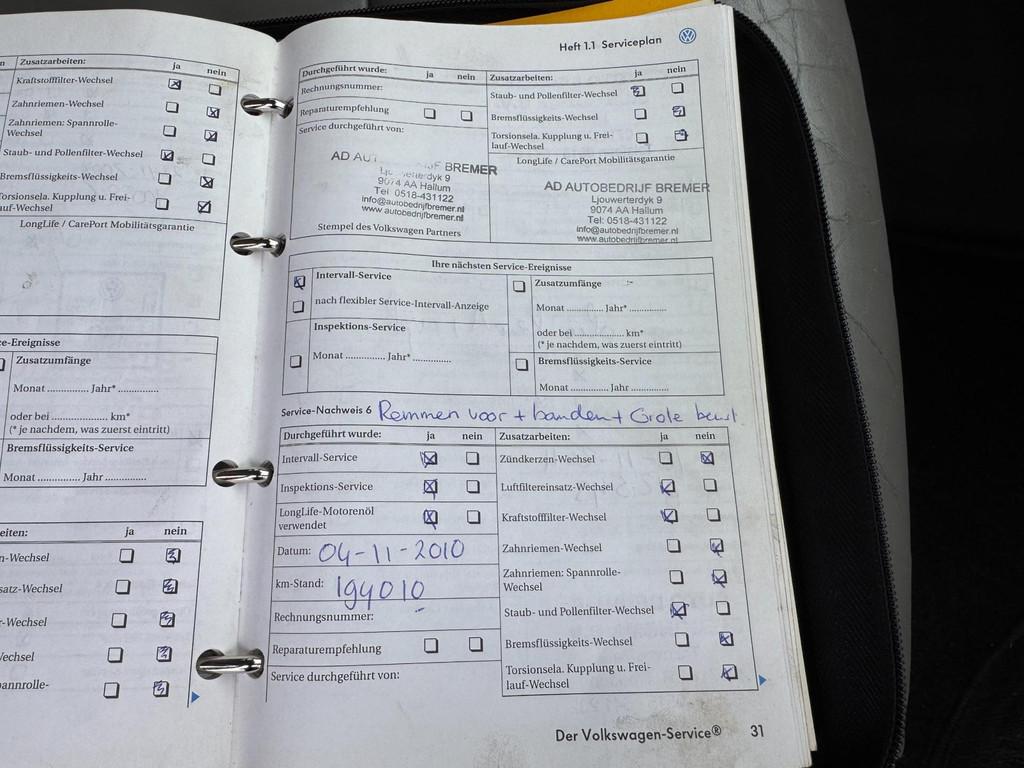 Zusatzarbeiten: ja nein
Kraftstofffilter-Wechsel
Zahnriemen-Wechsel
Zahnriemen: Spannrolle-
Wechsel
Staub- und Pollenfilter-Wechsel
Bremsflüssigkeits-Wechsel
Torsionsela. Kupplung u. Frei-
lauf-Wechsel
LongLife / CarePort Mobilitätsgarantie
ce-Ereignisse
Zusatzumfänge
Monat .............. Jahr* ..............
oder bei .................... km*
(* je nachdem, was zuerst eintritt)
Bremsflüssigkeits-Service
Monat .............. Jahr ..............
eiten: ja nein
n-Wechsel
satz-Wechsel
r-Wechsel
Wechsel
annrolle-
Heft 1.1 Serviceplan
Durchgeführt wurde: ja nein
Rechnungsnummer:
Reparaturempfehlung
Service durchgeführt von:
AD AU BREMER
dyk 9
9074 AA Hallum
Tel: 0518-431122
info@autobedrijfbremer.nl
www.autobedrijfbremer.nl
Stempel des Volkswagen Partners
Zusatzarbeiten: ja nein
Staub- und Pollenfilter-Wechsel
Bremsflüssigkeits-Wechsel
Torsionsela. Kupplung u. Frei-
lauf-Wechsel
LongLife / CarePort Mobilitätsgarantie
AD AUTOBEDRIJF BREMER
Ljouwerterdyk 9
9074 AA Hallum
Tel: 0518-431122
info@autobedrijfbremer.nl
www.autobedrijfbremer.nl
Ihre nächsten Service-Ereignisse
Intervall-Service
nach flexibler Service-Intervall-Anzeige
Inspektions-Service
Monat .............. Jahr* ..............
Zusatzumfänge
Monat .............. Jahr* ..............
oder bei .................... km*
(* je nachdem, was zuerst eintritt)
Bremsflüssigkeits-Service
Monat .............. Jahr ..............
Service-Nachweis 6 Remmen voor + banden + Grote beurt
Durchgeführt wurde: ja nein
Intervall-Service
Inspektions-Service
LongLife-Motorenöl
verwendet
Datum: 04-11-2010
km-Stand: 194010
Rechnungsnummer:
Reparaturempfehlung
Service durchgeführt von:
Zusatzarbeiten: ja nein
Zündkerzen-Wechsel
Luftfiltereinsatz-Wechsel
Kraftstofffilter-Wechsel
Zahnriemen-Wechsel
Zahnriemen: Spannrolle-
Wechsel
Staub- und Pollenfilter-Wechsel
Bremsflüssigkeits-Wechsel
Torsionsela. Kupplung u. Frei-
lauf-Wechsel
Der Volkswagen-Service® 31